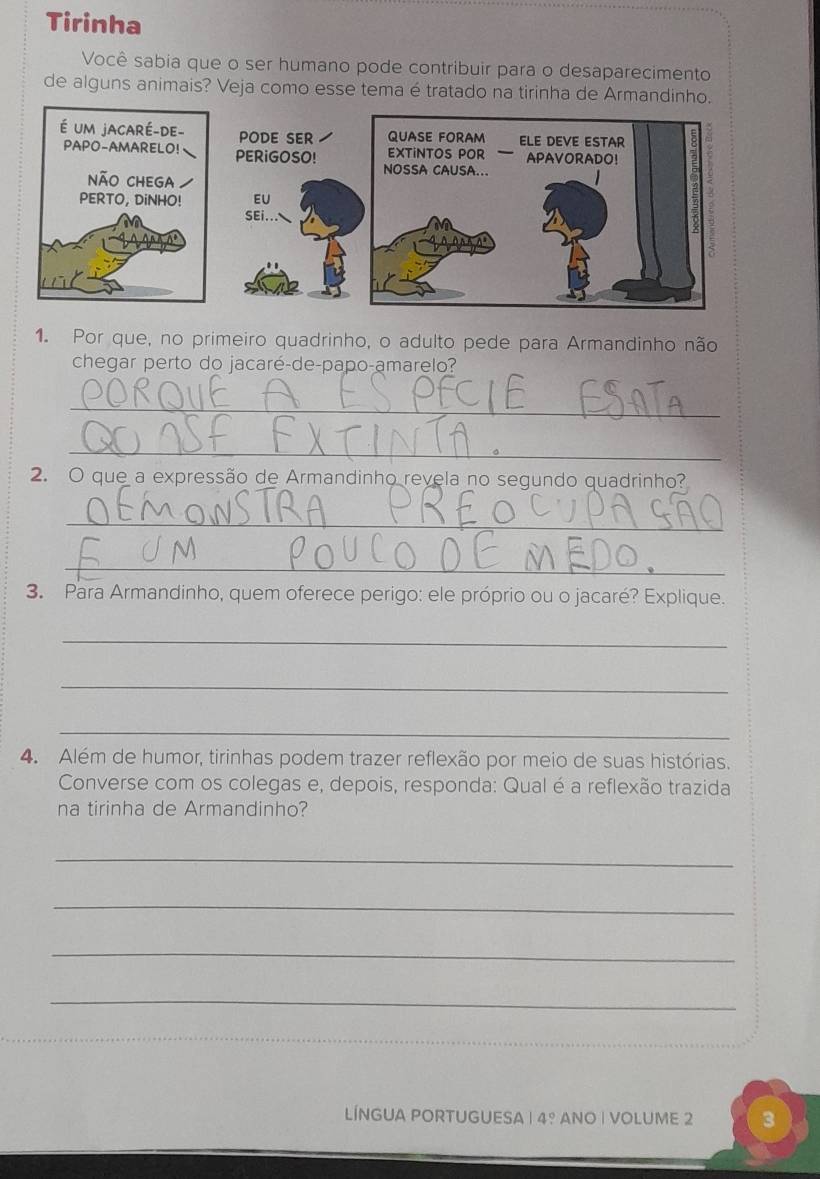 Tirinha
Você sabia que o ser humano pode contribuir para o desaparecimento
de alguns animais? Veja como esse tema é tratado na tirinha de Armandinho.
É UM JACARÉ-DE-
PAPO-AMARELO!
NÃO CHEGA
PERTO, DINHO!
PODE SER
PERIGOSO!
EU
SEI...
QUASE FORAM
EXTINTOS POR
NOSSA CAUSA...
ELE DEVE ESTAR
APAVORADO!
beckilustras@gmail.com
©Armandinho, de Alexandre Beck
1. Por que, no primeiro quadrinho, o adulto pede para Armandinho não
chegar perto do jacaré-de-papo-amarelo?
PORQUE A ESPÉCIE ESATA
QUASE EXTINTA.
2. O que a expressão de Armandinho revela no segundo quadrinho?
DEMONSTRA PREOCUPAÇÃO
E UM POUCO DE MEDO.
3. Para Armandinho, quem oferece perigo: ele próprio ou o jacaré? Explique.
4. Além de humor, tirinhas podem trazer reflexão por meio de suas histórias.
Converse com os colegas e, depois, responda: Qual é a reflexão trazida
na tirinha de Armandinho?
LÍNGUA PORTUGUESA | 4º ANO | VOLUME 2
3